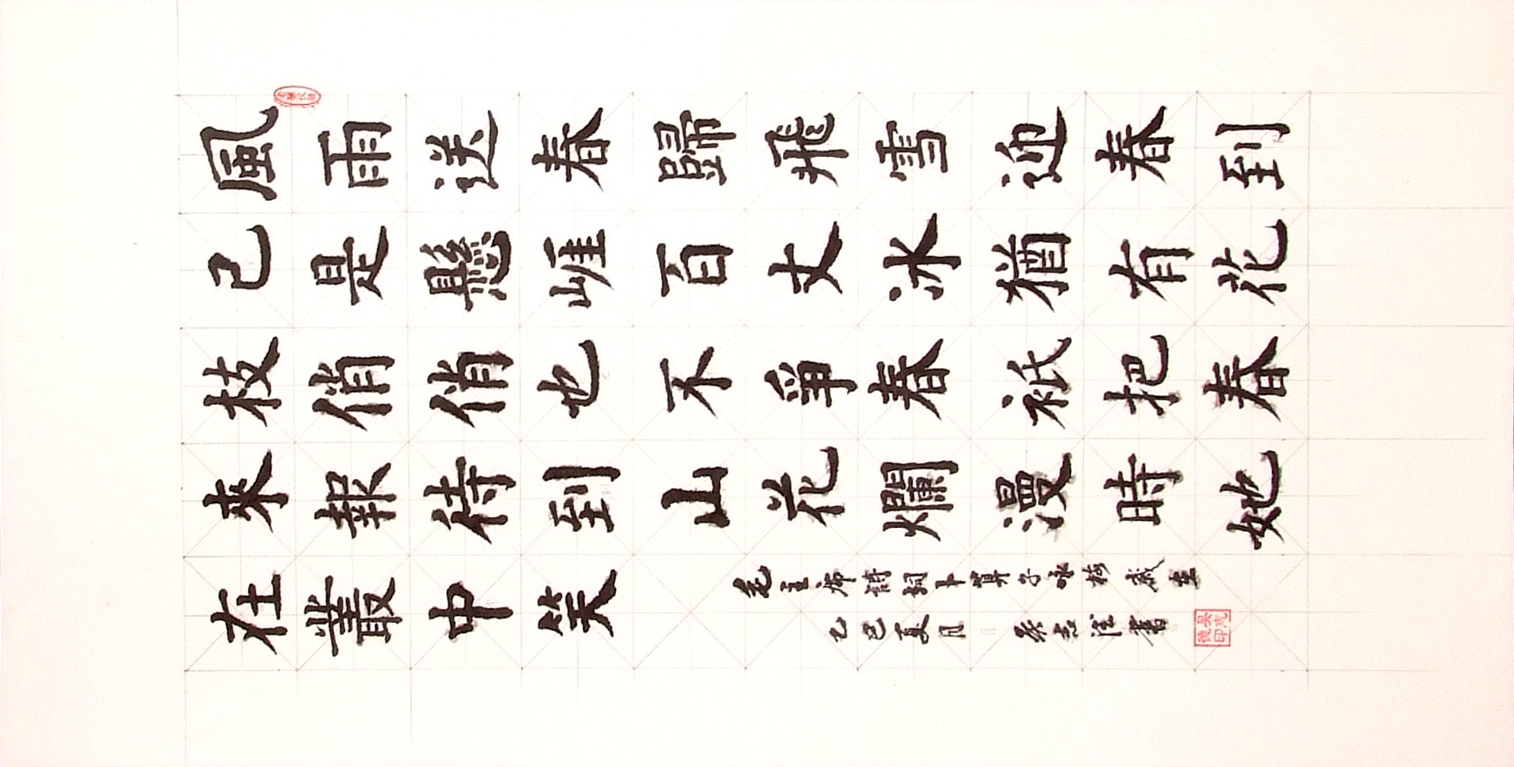 風雨送春歸飛雪迎春到
已是懸崖百丈冰猶有花
枝俏俏也不爭春衹把春
來報待到山花爛漫時她
在叢中笑
毛主席詩詞卜算子咏梅 歲在
乙巳夏月 吳志書